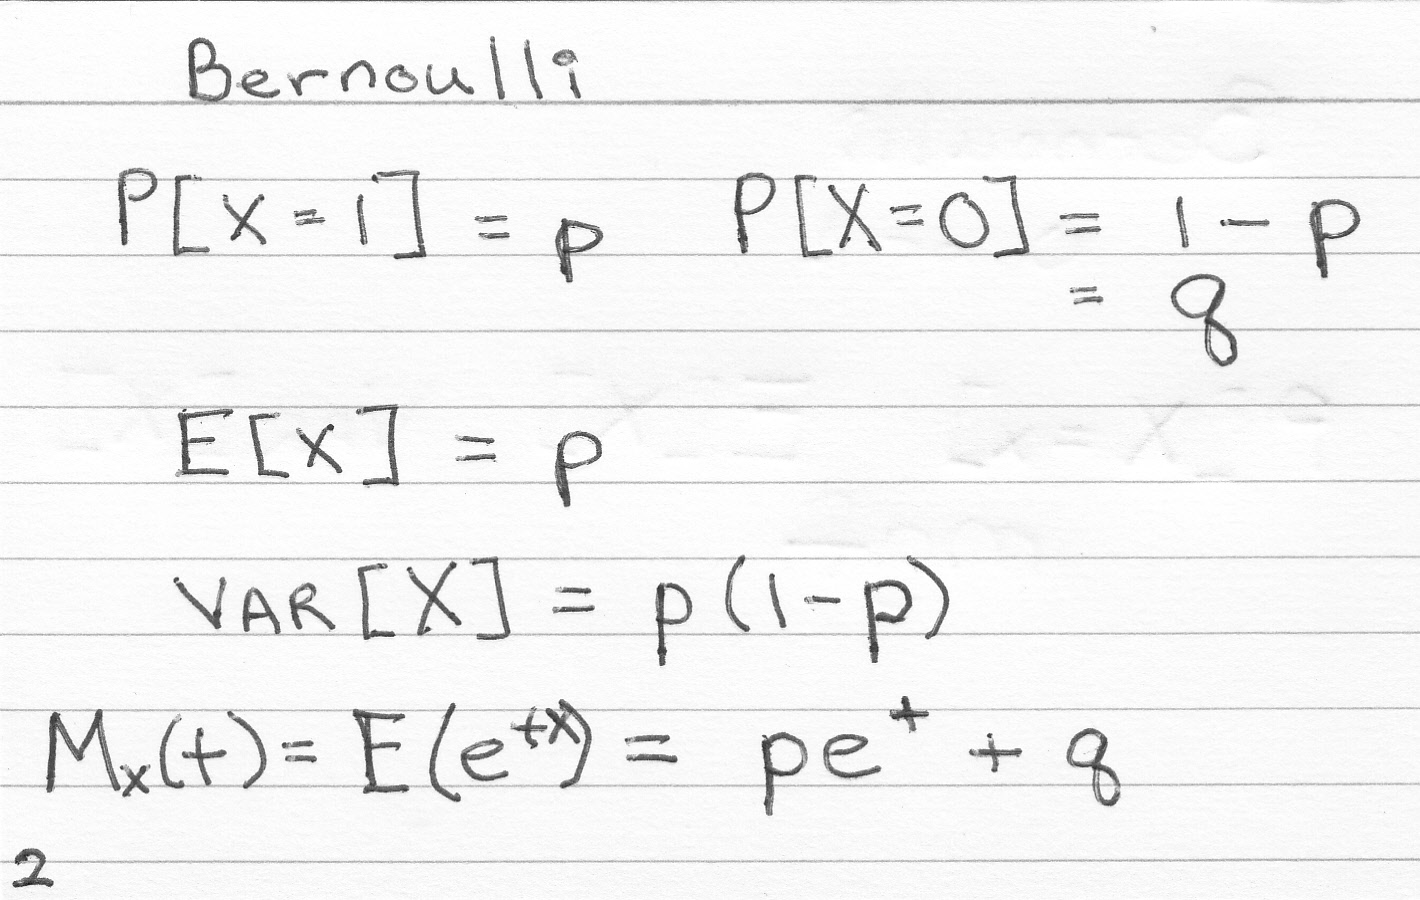 Bernoulli
P[X=1] = p P[X=0] = 1-p
= q
E[X] = p
VAR[X] = p(1-p)
Mₓ(t) = E(eᵗˣ) = peᵗ + q
2